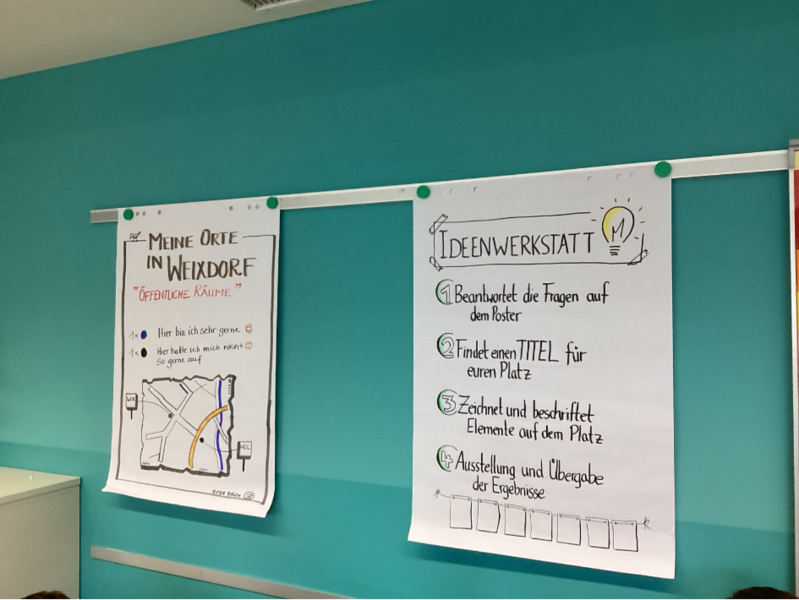 MEINE ORTE
IN WEIXDORF
"ÖFFENTLICHE RÄUME"
1x Hier bin ich sehr gerne
1x Hier halte ich mich nicht
so gerne auf
IDEENWERKSTATT
M
1 Beantwortet die Fragen auf
dem Poster
2 Findet einen TITEL für
euren Platz
3 Zeichnet und beschriftet
Elemente auf dem Platz
4 Ausstellung und Übergabe
der Ergebnisse